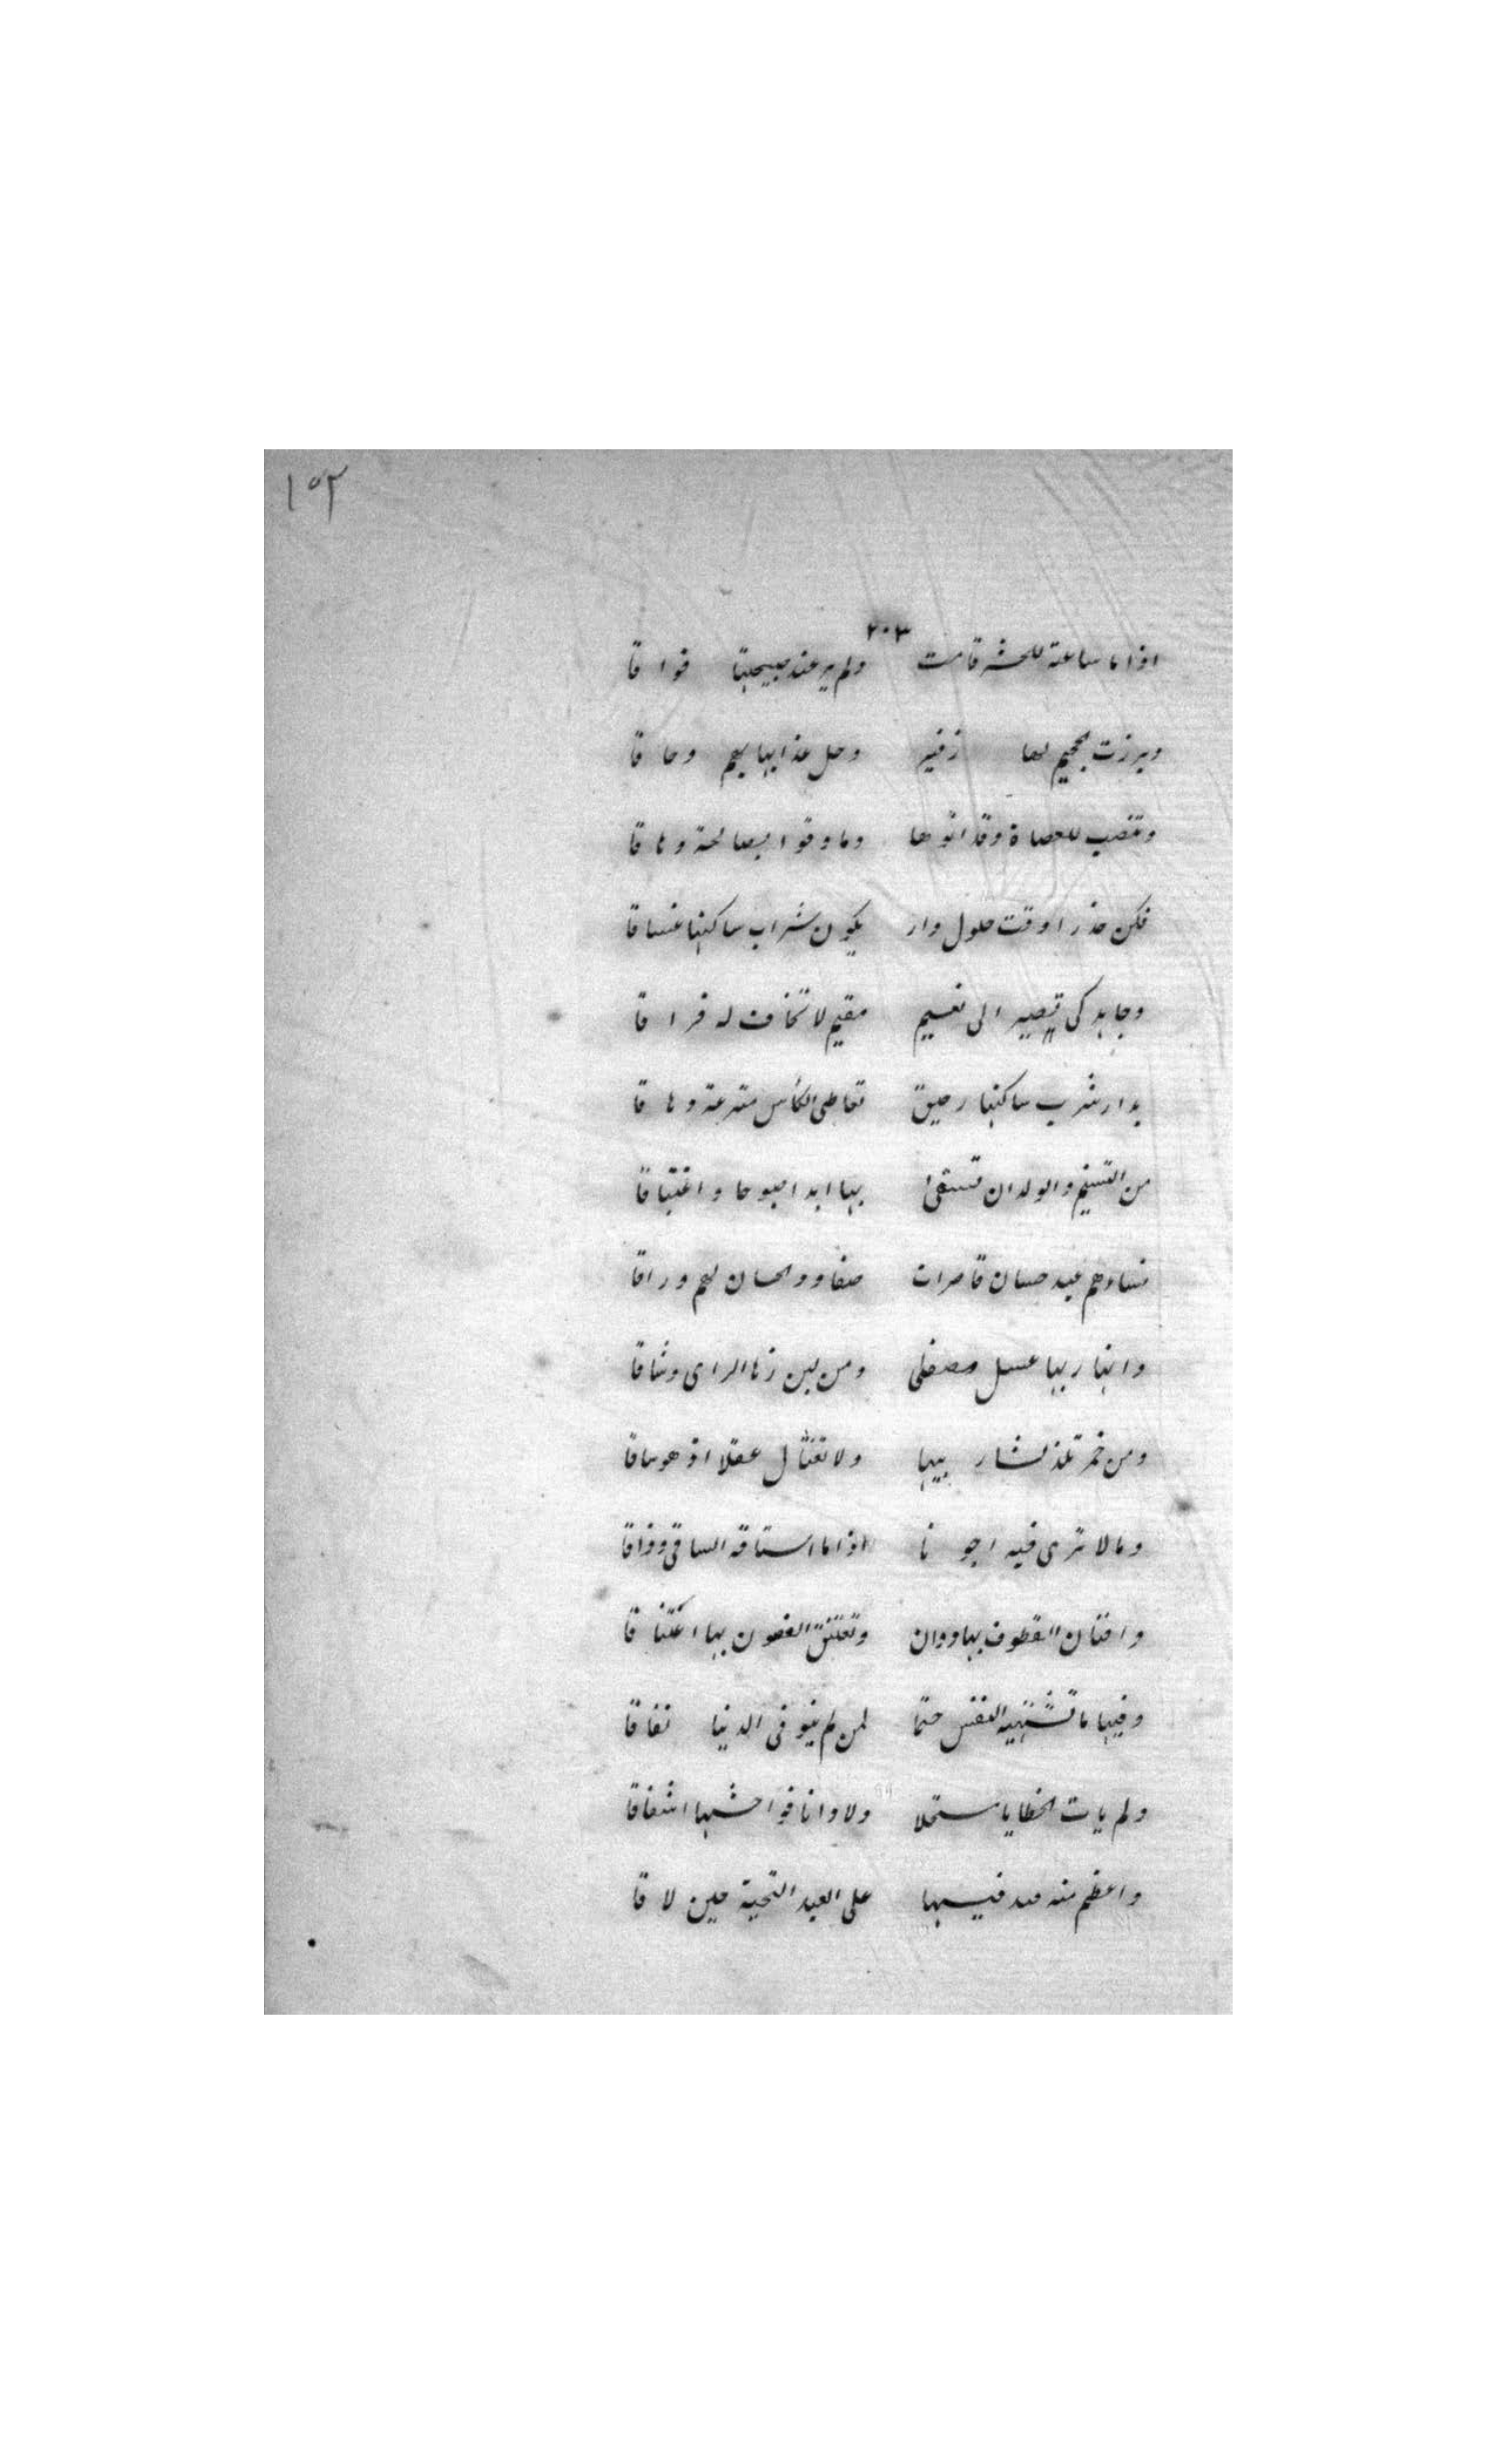 ١٥٢
٢٠٣
اذا ما ساعة للحشر قامت ولم ير عند صيحتها فواقا
وبرزت الجحيم لها زفير وحل عذابها بهم وحاقا
وتنصب للعصاة وقد اتوها وما وقوا بصالحة وثاقا
فكن حذرا وقت حلول دار يكون شراب ساكنها غساقا
وجاهد كي تصير الى نعيم مقيم لا تخاف له فراقا
بدار شرب ساكنها رحيق تعاطى الكأس مترعة دهاقا
من التسنيم والولدان تسقى بها ابدا صبوحا واغتباقا
نساءهم عيد حسان قاصرات صفا ود الحسان لهم وراقا
وانهار بها عسل مصفى ومن لبن زها الراى وشاقا
ومن خمر تلذ لشاربيها ولا تغتال عقلا اذ هو ساقا
وما لا ترى فيه اجونا اذا ما استاقه الساقى وذاقا
وافنان القطوف بها دوان وتعتنق الغصون بها اعتناقا
وفيها ما تشتهيه النفس حتما لمن لم ينو فى الدنيا نفاقا
ولم يات الخطايا مستحلا ولا دانا فواحشها اشفاقا
واعظم منه فيها على العبد التحية حين لاقا